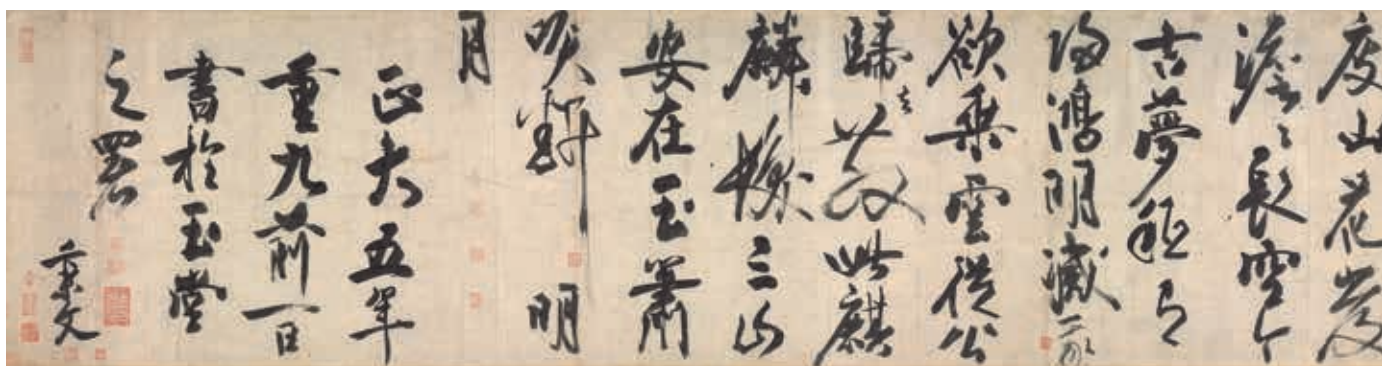 度山花發
澹〻長空今
古夢秖有
歸鴻明滅我
欲乘雲從公
歸去散此麒
麟髮三山
安在玉簫
吹斷明
月
正大五年
重九前一日
書於玉堂
之署
秉文